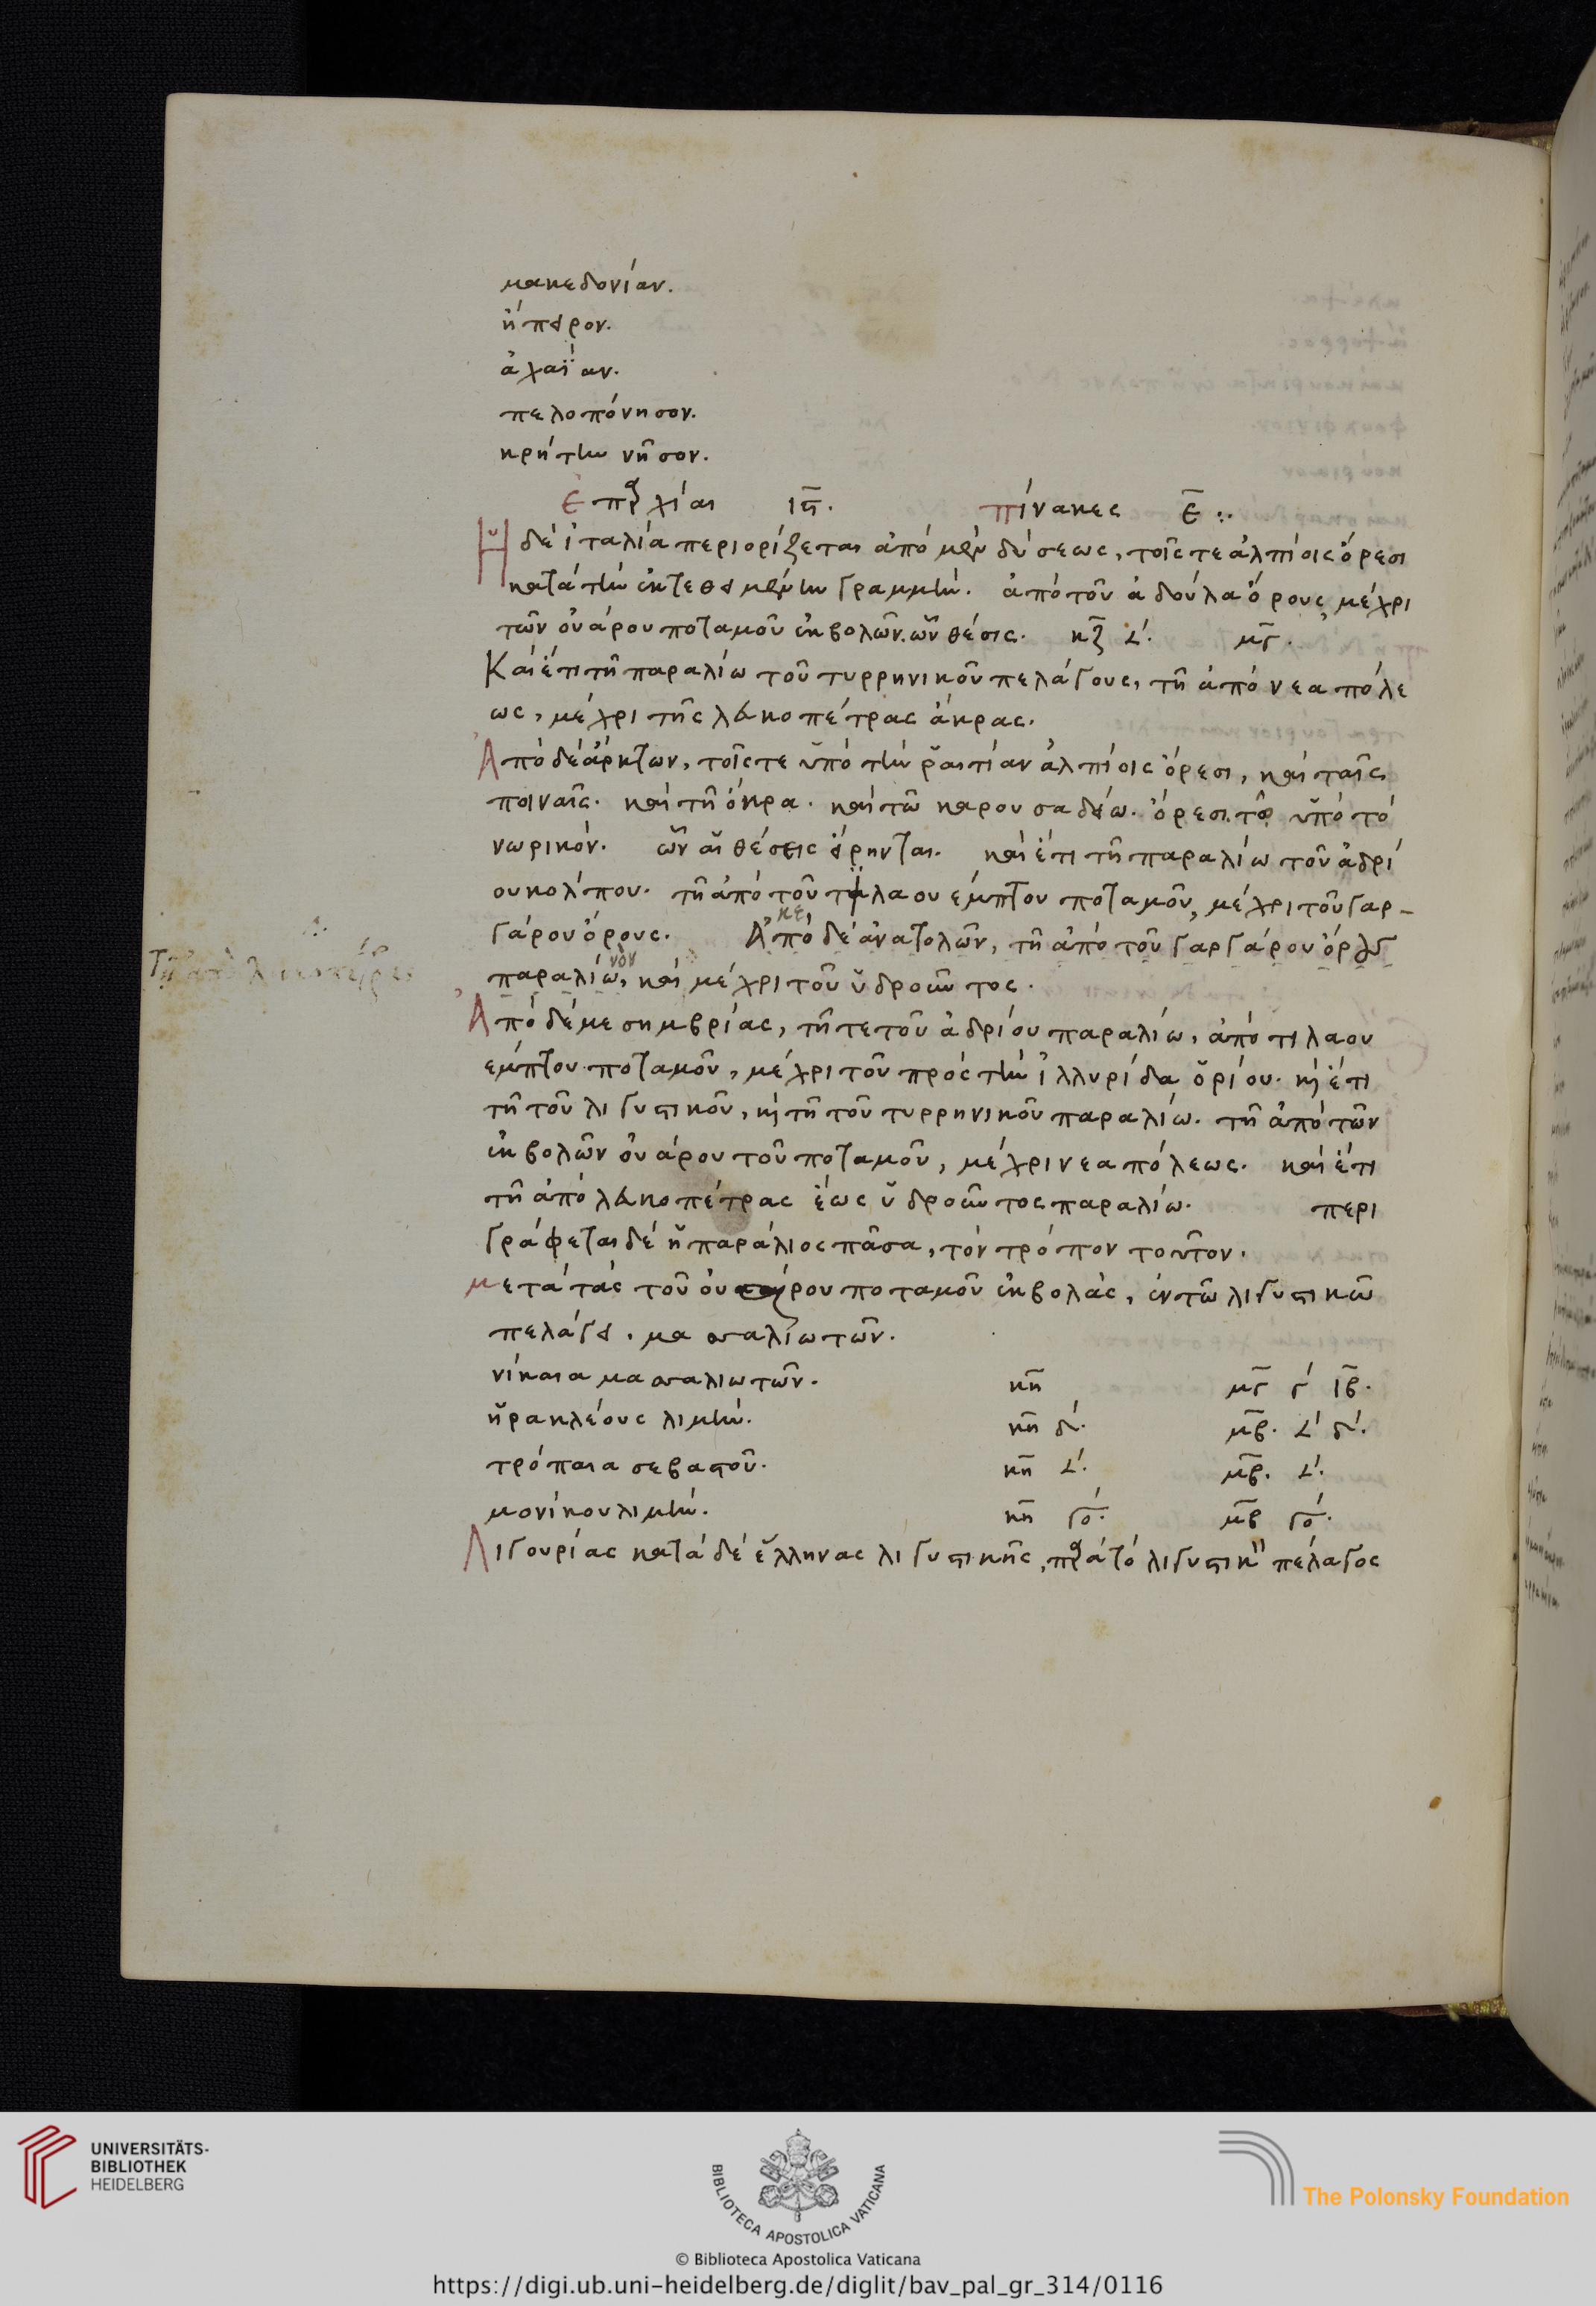 μακεδονίαν.
ἤπειρον.
ἀχαΐαν.
πελοπόνησον.
κρήτην νῆσον.
ἐπαρχίαι ιϛ̅. πίνακες ε̅ :
Ἡ δὲ ἰταλία περιορίζεται ἀπὸ μὲν δύσεως, τοῖς τε ἀλπίοις ὄρεσι
κατὰ τὴν ἐκτεθειμένην γραμμὴν. ἀπὸ τοῦ ἀδούλα ὄρους, μέχρι
τῶν οὐάρου ποταμοῦ ἐκβολῶν. ὧν θέσις. κζ̅ 𐅵. μγ̅.
Καὶ ἔτι τῆ παραλίω τοῦ τυρρηνικοῦ πελάγους, τῆ ἀπὸ νεαπόλε
ως, μέχρι τῆς λευκοπέτρας ἄκρας.
Ἀπὸ δὲ ἄρκτων, τοῖς τε ὑπὸ τὴν ῥαιτίαν ἀλπίοις ὄρεσι, καὶ ταῖς
ποιναῖς. καὶ τῆ ὄκρα. καὶ τῶ καρουσαδείω. ὄρεσι τοῖς ὑπὸ τὸ
νωρικόν. ὧν αἱ θέσεις εἴρηνται. καὶ ἔτι τῆ παραλίω τοῦ ἀδρί
ου κολίπου. τῆ ἀπὸ τοῦ τιλαουέμπτου ποταμοῦ, μέχρι τοῦ γαρ-
γάρου ὄρους. Ἀπὸ δὲ ἀνατολῶν, τῆ ἀπὸ τοῦ γαργάρου ὄρους
παραλίω, καὶ μέχρι τοῦ ὑδροῦντος.
Ἀπὸ δὲ μεσημβρίας, τῆ τε τοῦ ἀδρίου παραλίω, ἀπὸ τιλαου
έμπτου ποταμοῦ, μέχρι τοῦ πρὸς τὴν ἰλλυρίδα ὁρίου. καὶ ἔτι
τῆ τοῦ λιγυστικοῦ, καὶ τῆ τοῦ τυρρηνικοῦ παραλίω. τῆ ἀπὸ τῶν
ἐκβολῶν οὐάρου τοῦ ποταμοῦ, μέχρι νεαπόλεως. καὶ ἔτι
τῆ ἀπὸ λευκοπέτρας ἕως ὑδροῦντος παραλίω. περι
γράφεται δὲ ἡ παράλιος πᾶσα, τὸν τρόπον τοῦτον.
μετὰ τὰς τοῦ οὐάρου ποταμοῦ ἐκβολὰς, ἐν τῶ λιγυστικῶ
πελάγει. μασσαλιωτῶν.
νίκαια μασσαλιωτῶν. κη̅ μγ̅ γ´ ιβ̅.
ἡρακλέους λιμήν. κη̅ δ´. μβ̅. 𐅵 δ´.
τρόπαια σεβαστοῦ. κη̅ 𐅵. μβ̅. 𐅵.
μονίκου λιμήν. κη̅ γο´. μβ̅ γο´.
Λιγουρίας κατὰ δὲ ἕλληνας λιγυστικῆς, παρὰ τὸ λιγυστικὸν πέλαγος
UNIVERSITÄTS-
BIBLIOTHEK
HEIDELBERG
BIBLIOTECA APOSTOLICA VATICANA
The Polonsky Foundation
© Biblioteca Apostolica Vaticana
https://digi.ub.uni-heidelberg.de/diglit/bav_pal_gr_314/0116